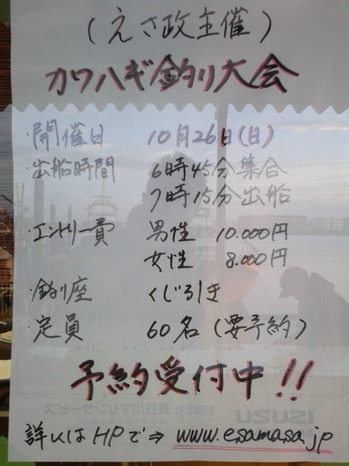 (えさ政主催)
カワハギ釣り大会
・開催日 10月26日(日)
・出船時間 6時45分集合
7時15分出船
・エントリー費 男性 10.000円
女性 8.000円
・釣り座 くじ引き
・定員 60名(要予約)
予約受付中!!
詳しくはHPで⇒ www.esamasa.jp
ISUZU